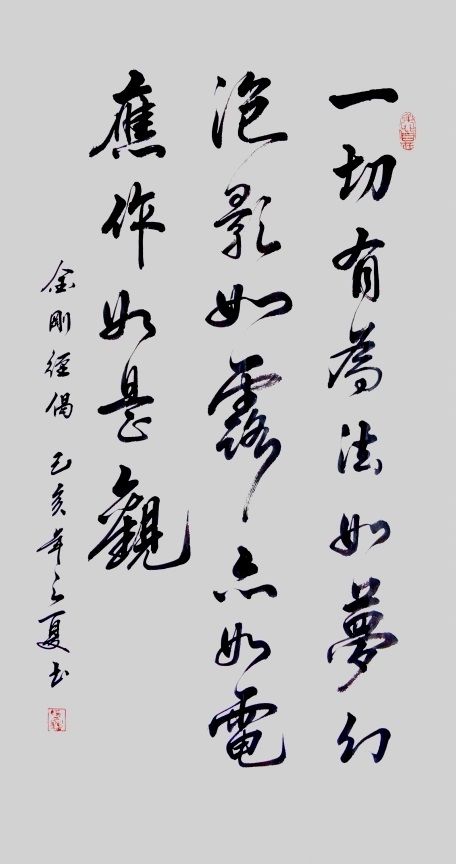 一切有為法如夢幻
泡影如露亦如電
應作如是觀
金剛經偈 己亥年之夏書